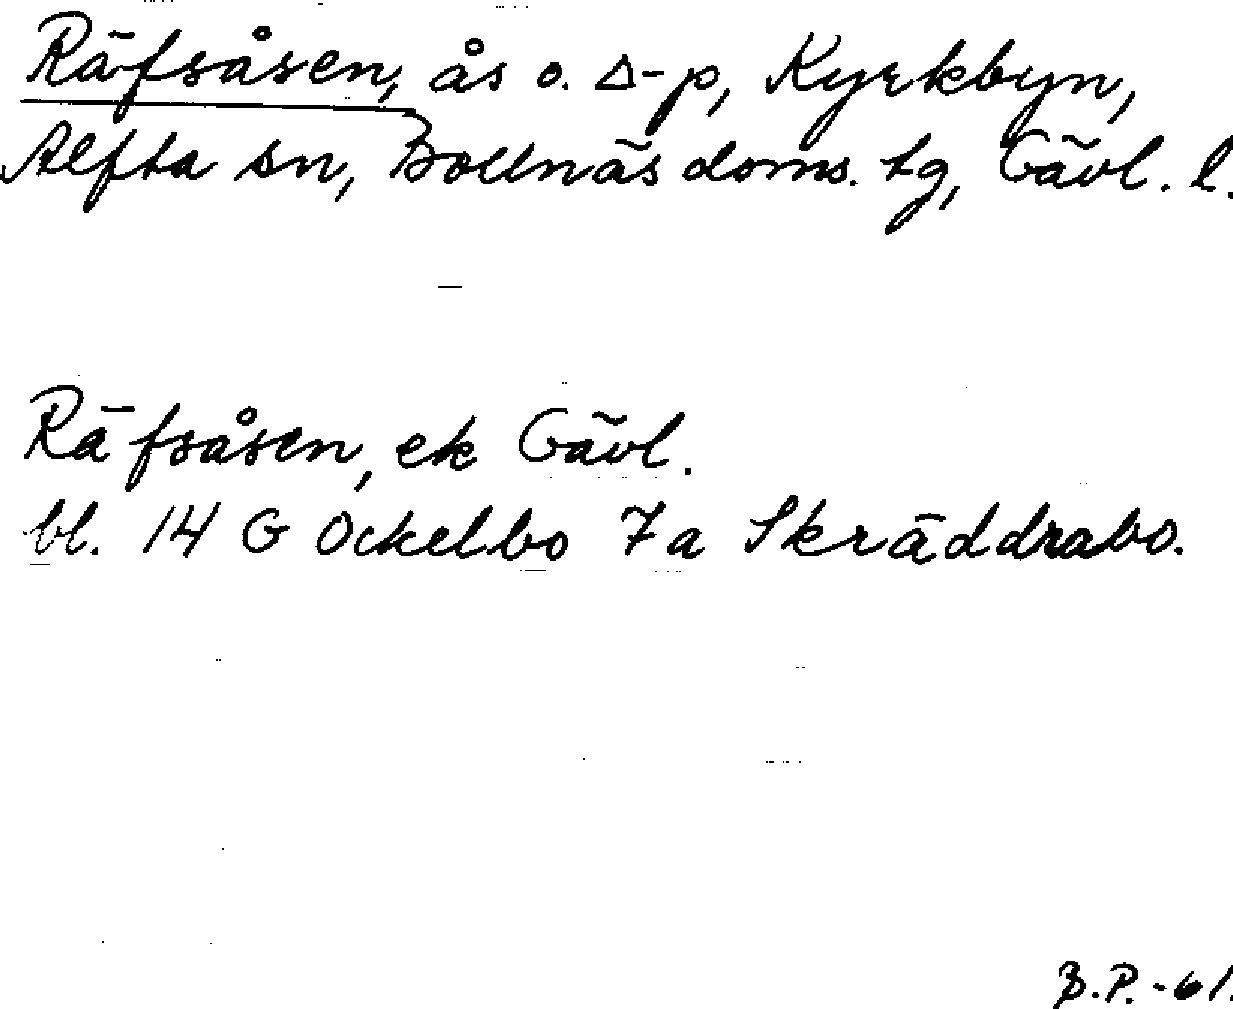 Räfsåsen, ås o. Δ-p, Kyrkbyn,
Alfta sn, Bollnäs doms. tg, Gävl. l.
Räfsåsen, ek Gävl.
bl. 14 G Ockelbo 7a Skräddrabo.
B.P.-61.